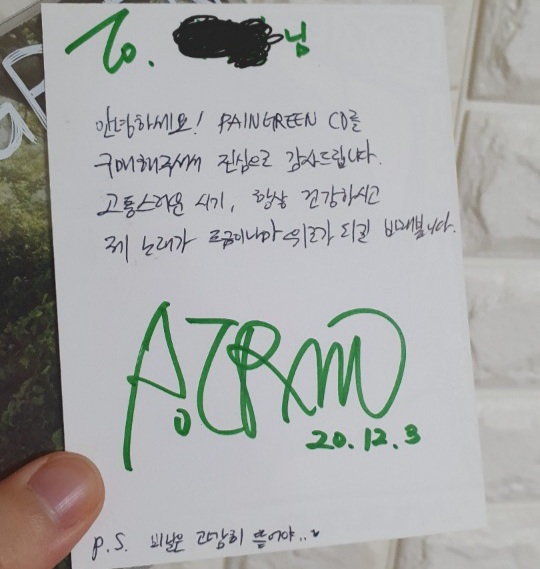 To. 님
안녕하세요! PAINGREEN CD를
구매해주셔서 진심으로 감사드립니다.
고통스러운 시기, 항상 건강하시고
제 노래가 조금이나마 위로가 되길 바래봅니다.
20.12.3
P.S. 비닐은 과감히 뜯어야..